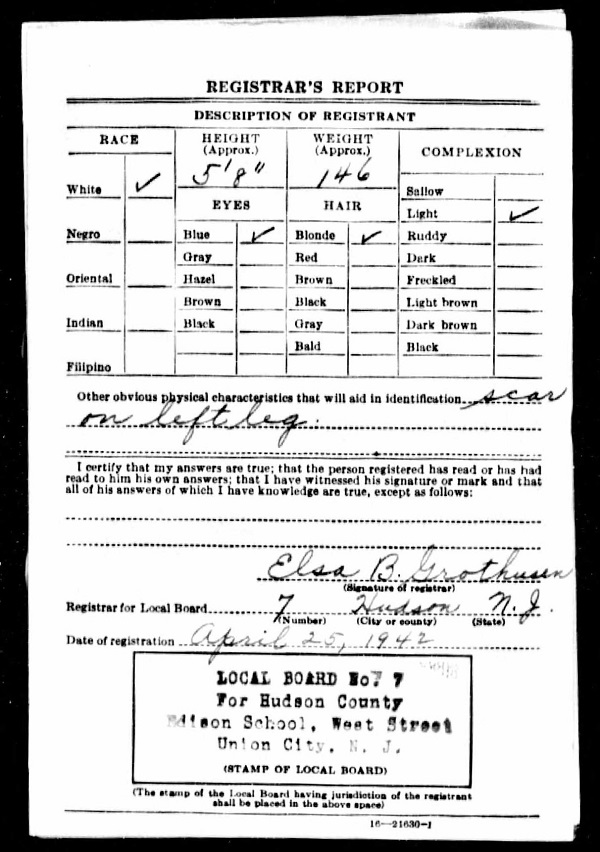 REGISTRAR'S REPORT
DESCRIPTION OF REGISTRANT
RACE
HEIGHT
(Approx.)
WEIGHT
(Approx.)
COMPLEXION
5' 8"
146
White ✓
Sallow
EYES
HAIR
Light ✓
Negro
Blue ✓
Blonde ✓
Ruddy
Gray
Red
Dark
Oriental
Hazel
Brown
Freckled
Brown
Black
Light brown
Indian
Black
Gray
Dark brown
Bald
Black
Filipino
Other obvious physical characteristics that will aid in identification scar
on left leg.
I certify that my answers are true; that the person registered has read or has had
read to him his own answers; that I have witnessed his signature or mark and that
all of his answers of which I have knowledge are true, except as follows:
Elsa B. Grothusen
(Signature of registrar)
Registrar for Local Board 7 Hudson N.J.
(Number) (City or county) (State)
Date of registration April 25, 1942
LOCAL BOARD No. 7
For Hudson County
Edison School, West Street
Union City, N. J.
(STAMP OF LOCAL BOARD)
(The stamp of the Local Board having jurisdiction of the registrant
shall be placed in the above space)
16—21630-1